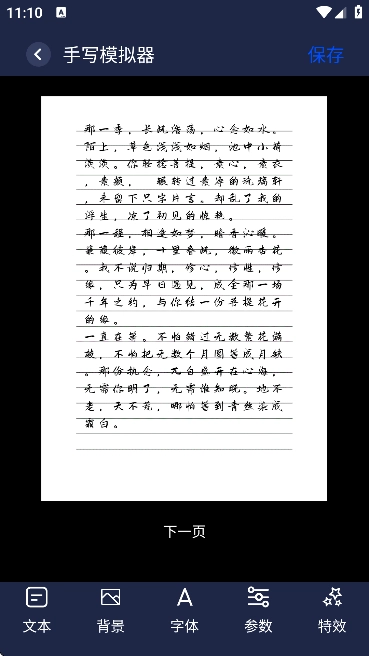 11:10
手写模拟器
保存
那一季，长风浩荡，心念如水。
陌上，草色浅浅如烟，池中小荷
淡淡。你轻捻菩提，素心，素衣
，素颜， 辗转过素净的流
，未留下只字片言。却乱了我的
浮生，凉了初见的惊艳。
那一程，相逢如梦，暗香沁暖。
蒹葭彼岸，十里春风，微雨杏花
。我不说归期，修心，修性，修
缘，只为早日遇见，成全那一场
千年之约，与你结一份菩提花开
的缘。
一直在等。不怕错过无数繁花满
枝，不怕把无数个月圆等成月缺
。那份执念，兀自盛开在心海，
无需你明了，无需谁知晓。地不
老，天不荒，哪怕等到青丝染成
霜白。
下一页
文本
背景
字体
参数
特效